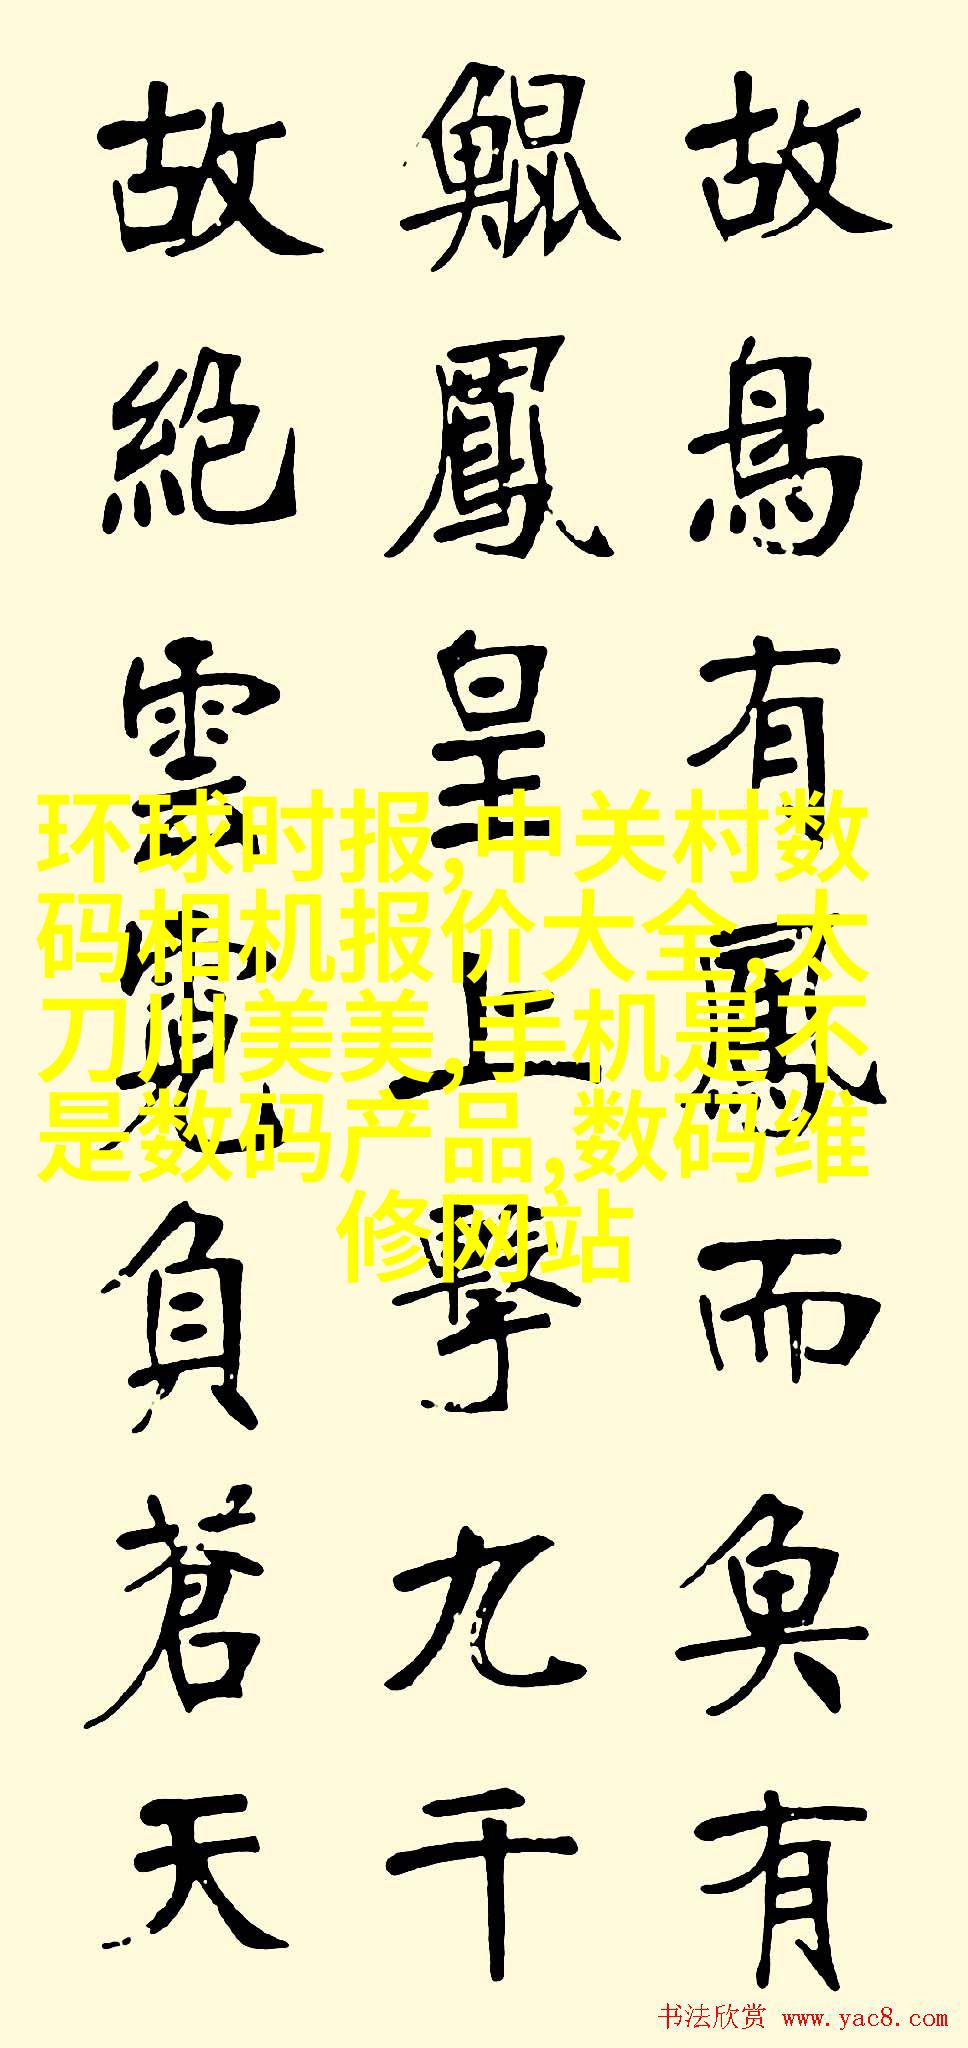 故鳥有鳳而魚有
鯤鳳皇上擊九千
故絕雲霓負蒼天
环球时报,中关村数
码相机报价大全,太
刀川美美,手机是不
是数码产品,数码维
修网站
书法欣赏 www.yac8.com